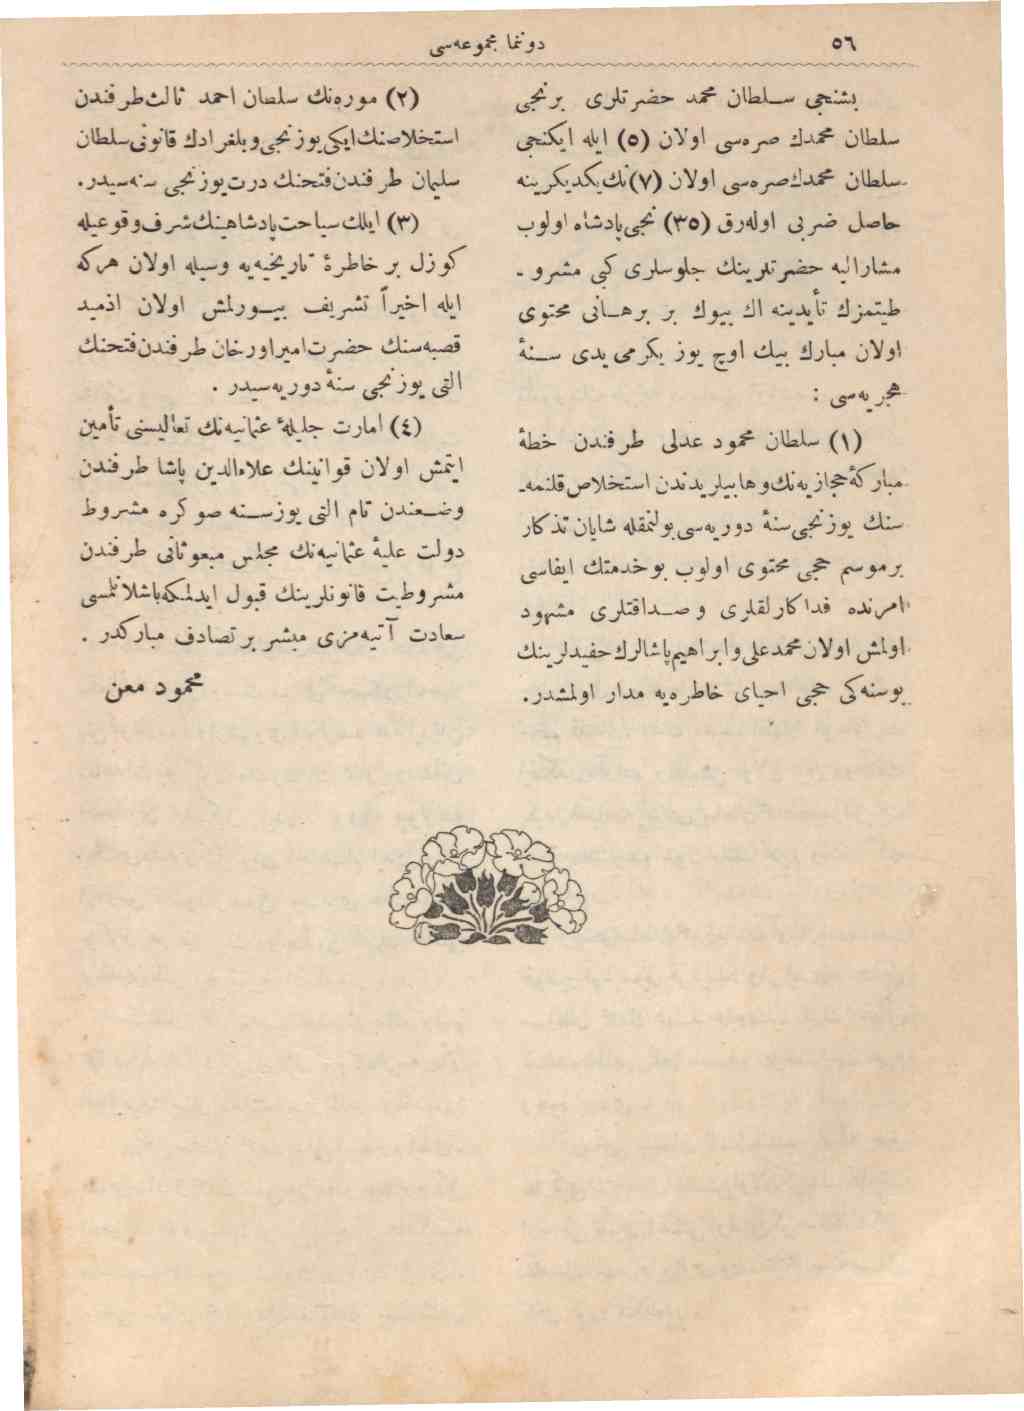 ٥٦
دوننما مجموعه‌سی
بشنجی سـلطان محمد حضرتلری برنجی
سلطان محمدك صره‌سی اولان (٥) ایله ایکنجی
سلطان محمدك صره‌سی اولان (٧) نك یکدیکرینه
حاصل ضربی اوله‌رق (٣٥) نجی پادشاه اولوب
مشارالیه حضرتلرینك جلوسلری کبی مشرو -
طیتمزك تأییدینه اك بیوك بر برهـانی محتوی
اولان مبارك بیك اوچ یوز یکرمی یدی سـنۀ
هجریه‌سی :
(١) سلطان محمود عدلی طرفندن خطۀ
مبارکۀ حجازیه‌نك وهابیلر یدندن استخلاص قلنمه-
سنك یوزنجی سنۀ دوریه‌سی بولنمقله شایان تذکار
برموسم حجی محتوی اولوب بوخدمتك ایفاسی
امرنده فداکارلقلری وصـداقتلری مشهود
اولمش اولان محمدعلی وابراهیم پاشالرك حفیدلرینك
بوسنه‌کی حجی احیای خاطره‌یه مدار اولمشدر.
(٢) موره‌نك سلطان احمد ثالث طرفندن
استخلاصنك ایکی یوزنجی وبلغرادك قانونی سلطان
سلیمان طرفندن فتحنك درت یوزنجی سنه‌سیدر.
(٣) ایلك سیاحت پادشاهینك شرف وقوعیله
کوزل بر خاطرۀ تاریخیه‌یه وسیله اولان هرکه
ایله اخیراً تشریف بیـورلمش اولان ازمید
قصبه‌سنك حضرت امیراورخان طرفندن فتحنك
التی یوزنجی سنۀ دوریه‌سیدر .
(٤) امارت جلیلۀ عثمانیه‌نك تعالیسنی تأمین
ایتمش اولان قوانینك علاءالدین پاشا طرفندن
وضـعندن تام التی یوزسـنه صوکره مشروط
دولت علیۀ عثمانیه‌نك مجلس مبعوثانی طرفندن
مشروطیت قانونلرینك قبول ایدلمکه باشلانلمسی
سعادت آتیه‌مزی مبشر بر تصادف مبارکدر .
محمود معن